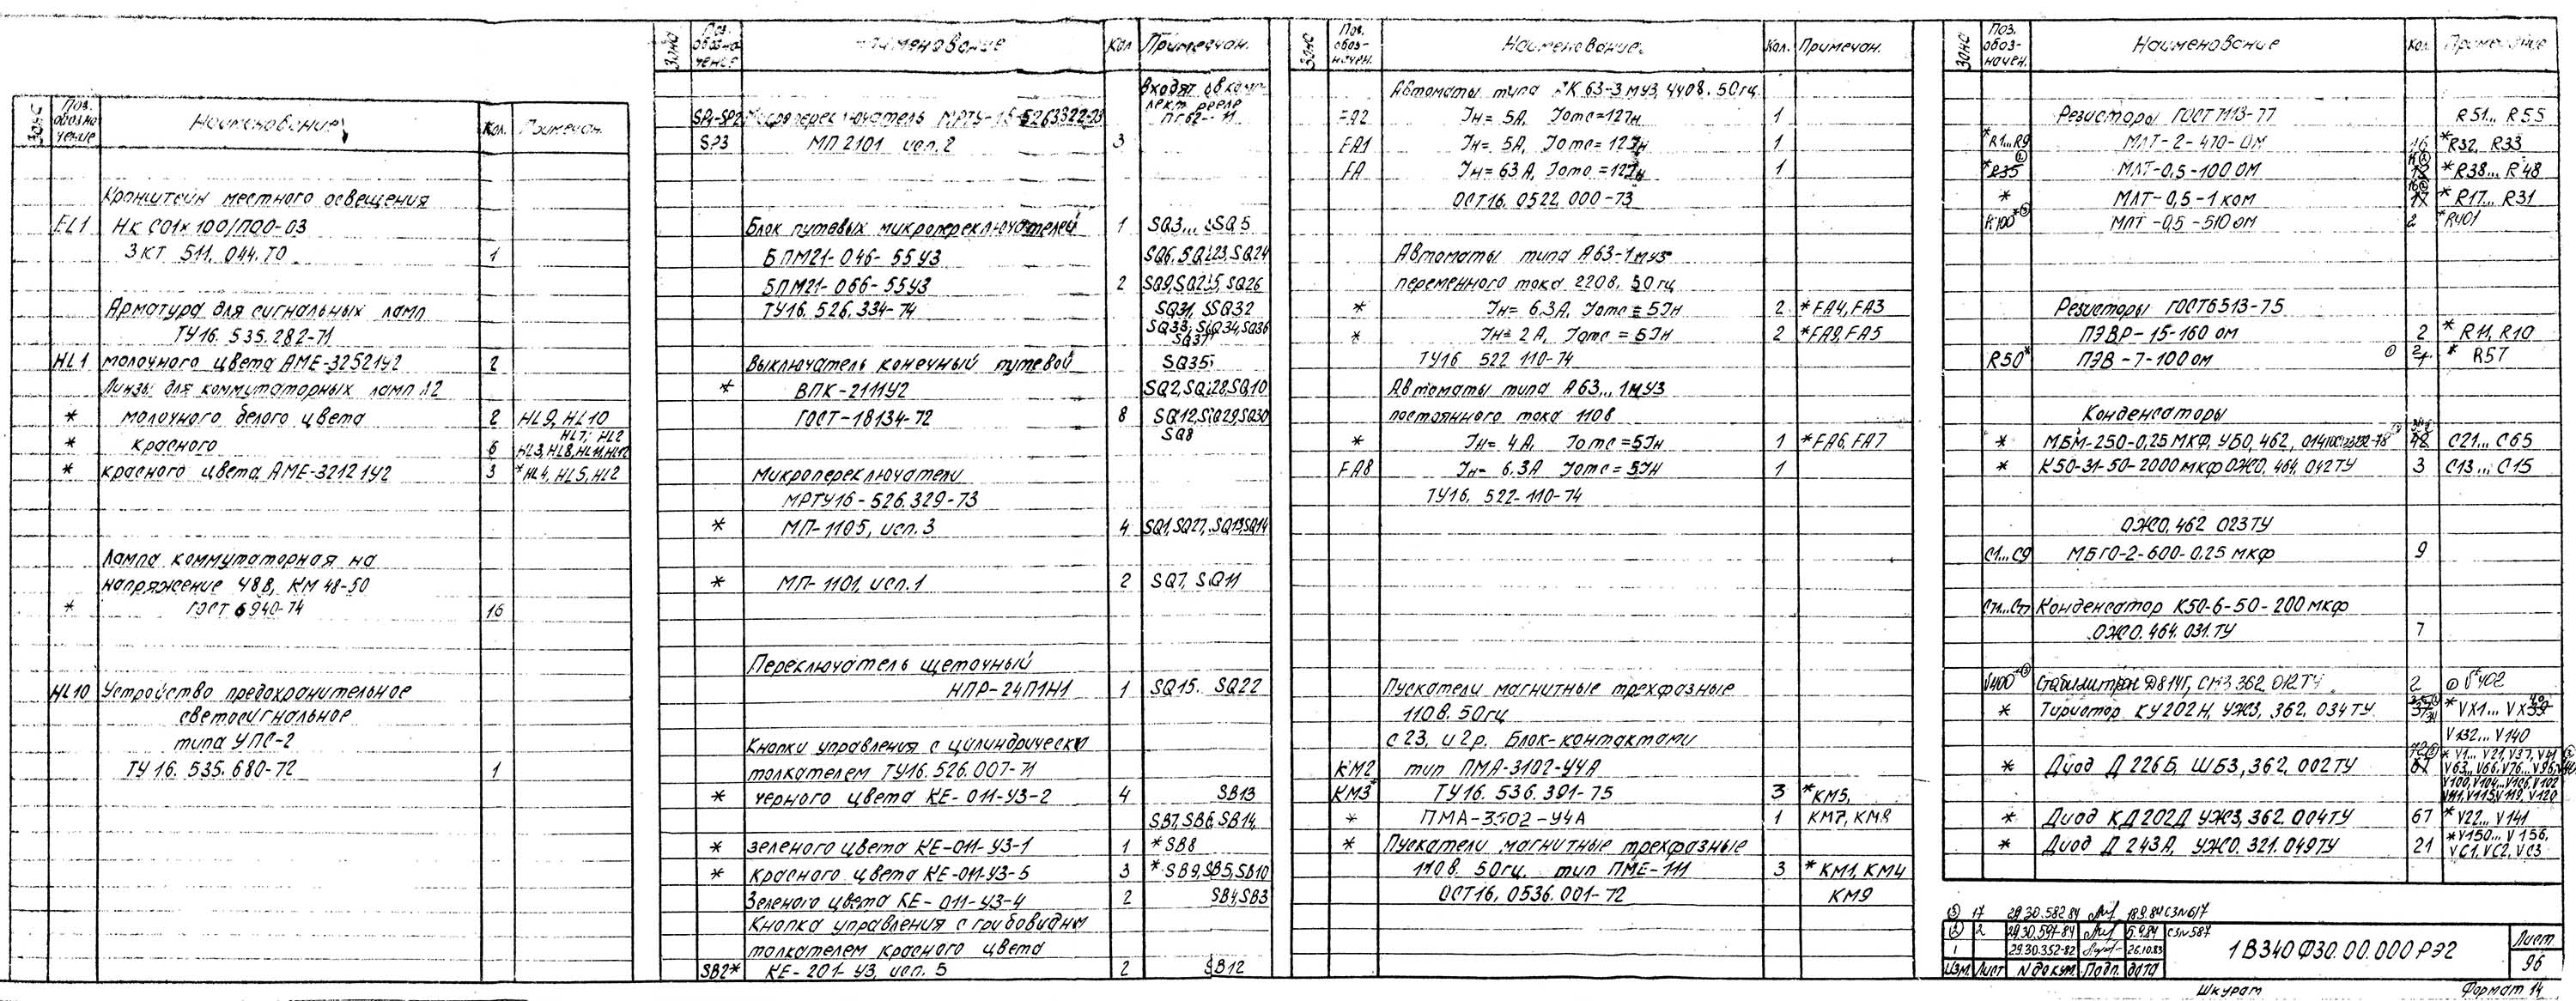 Зона
Поз. обозна чение
Наименование
Кол.
Примечан.
Кронштейн местного освещения
EL1 НК С01х100/П00-03
3 КТ 511. 044. ТО 1
Арматура для сигнальных ламп
ТУ16. 535. 282-71
HL1 молочного цвета АМЕ-3252142 2
Линзы для коммутаторных ламп Л2
* молочного белого цвета 2 HL9, HL10
HL7, HL2
* красного 6 HL3, HL8, HL11, HL12
* красного цвета АМЕ-3212142 3 *HL4, HL5, HL2
Лампа коммутаторная на
напряжение 48В, КМ 48-50
* ГОСТ 6940-74 16
HL10 Устройство предохранительное
светосигнальное
типа УПС-2
ТУ 16. 535. 680-72 1
Зона
Поз. обозна чение
Наименование
Кол
Примечан.
входят в комп-
лект реле
SP1-SP2 Микропереключатель МРТУ-16-5263322-73
SP3 МП 2101 исп. 2 3
Блок путевых микропереключателей 1 SQ3... SQ5
БПМ21-046-55У3 SQ6, SQ23, SQ24
БПМ21-066-55У3 2 SQ9, SQ25, SQ26
ТУ16. 526. 334-74 SQ31, SQ32
SQ33, SQ34, SQ36
SQ37
Выключатель конечный путевой SQ35
* ВПК-2111У2 SQ2, SQ28, SQ10
ГОСТ-18134-72 8 SQ12, SQ29, SQ30
SQ8
Микропереключатели
МРТУ16-526.329-73
* МП-1105, исп. 3 4 SQ1, SQ27, SQ13, SQ14
* МП-1101, исп. 1 2 SQ7, SQ11
Переключатель щеточный
НПР-24П1Н1 1 SQ15. SQ22
Кнопки управления с цилиндрически
толкателем ТУ16. 526. 007-71
* черного цвета КЕ-011-У3-2 4 SB13
SB7, SB6, SB14,
* зеленого цвета КЕ-011-У3-1 1 *SB8
* красного цвета КЕ-011-У3-5 3 *SB9, SB5, SB10
Зеленого цвета КЕ-011-У3-4 2 SB4, SB3
Кнопка управления с грибовидны
толкателем красного цвета
SB2* КЕ-201-У3, исп. 5 2 SB12
Зона
Поз. обоз- начен.
Наименование
Кол.
Примечан.
Автоматы типа АК 63-3 МУ3, 440В. 50гц
FA2 Iн= 5А, Iотс=12Iн 1
FA1 Iн= 5А, Iотс=12Iн 1
FA Iн= 63 А, Iотс=12Iн 1
ОСТ16. 0522. 000-73
Автоматы типа А63-1МУ3
переменного тока 220В. 50гц
* Iн= 6.3А, Iотс = 5Iн 2 *FA4, FA3
* Iн= 2 А, Iотс = 5Iн 2 *FA9, FA5
ТУ16 522 110-74
Автоматы типа А63... 1МУ3
постоянного тока 110В
* Iн= 4А, Iотс=5Iн 1 *FA6, FA7
FA8 Iн= 6.3А Iотс = 5Iн 1
ТУ16. 522-110-74
Пускатели магнитные трехфазные
110В. 50гц
с 23. и 2р. Блок-контактами
KM2 тип ПМА-3102-У4А
KM3* ТУ16. 536. 391-75 3 *KM5,
* ПМА-3502-У4А 1 KM7, KM8
* Пускатели магнитные трехфазные
110В. 50гц. тип ПМЕ-111 3 *KM1, KM4
ОСТ16. 0536. 001-72 KM9
Зона
Поз. обоз- начен.
Наименование
Кол.
Примечание
Резисторы ГОСТ7113-77 R51... R55
*R1...R9 МЛТ-2-470-ОМ 16 *R32, R33
*R35 МЛТ-0,5-100 ОМ *R38... R48
* МЛТ-0,5-1 ком *R17... R31
R400* МЛТ-0,5-510 ОМ 2 *R401
Резисторы ГОСТ6513-75
ПЭВР-15-160 ом 2 *R11, R10
R50* ПЭВ-7-100 ом * R57
Конденсаторы
* МБМ-250-0,25 МКФ, УБ0, 462, 014 48 C21... C65
* К50-31-50-2000 мкф ОЖ0. 464. 042ТУ 3 C13... C15
ОЖ0. 462 023ТУ
C1...C9 МБГО-2-600-0.25 мкф 9
Конденсатор К50-6-50-200 мкф
ОЖ0. 464. 031. ТУ 7
V400* Стабилитрон Д814Г, СМ3. 362. 012ТУ 2 V*402
* Тиристор КУ202Н, УЖ3, 362. 034 ТУ *VX1... VX39
V132... V140
*V1... V21, V37, V41
* Диод Д 226Б, ШБ3, 362. 002ТУ V63...V66, V76...V96
V100, V104...V106, V102
V111, V115, V119, V120
* Диод КД202Д УЖ3, 362. 004ТУ 67 *V22... V141
* Диод Д 243А, УЖ0. 321. 049ТУ 21 *V150... V156,
VC1, VC2, VC3
3 17 29.30.582 84 18.9.84 СЗ№617
2 2 29.30.597-84 5.9.84 СЗ№587
1 29.30.352-82 26.10.83
Изм. Лист № докум. Подп. дата
1В340Ф30.00.000 РЭ2
Лист
96
Шкурат
Формат 14